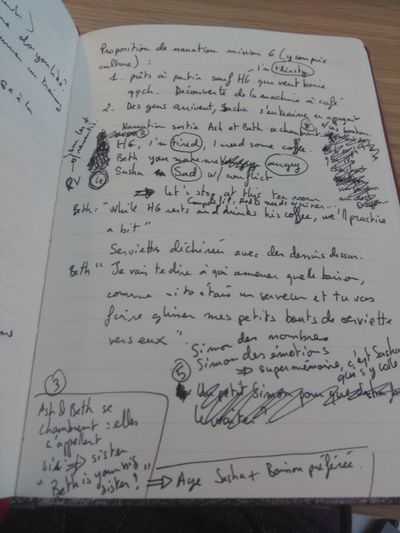 do you like
Proposition de narration mission 6 (y compris
culture) : I'm thirsty
1. prêts à partir sauf HG qui veut boire
qqch. Découverte de la machine à café
2. Des gens arrivent, Sacha s'entraîne en
Narration sortie Ash et Beth se chambrent
HG, I'm tired, I need some coffee
Beth you make me angry
Sasha Sad w/ conflict
⇒ Let's stop at this tea room
Beth : "While HG rests and drinks his coffee, we'll practice
a bit"
Serviettes déchirées avec des dessins dessus.
Beth " Je vais te dire à qui amener quelle boisson,
comme si tu étais un serveur et tu vas
faire glisser mes petits bouts de serviette
vers eux "
Simon des nombres
Simon des émotions
⇒ supermémoire, c'est Sasha
qui s'y colle
5
Un petit Simon pour que
3
Ash & Beth se
chambrent : elles
s'appellent
sis ⇒ sister
"Beth is your big
sister ?"
⇒ Age Sasha + Boisson préférée.